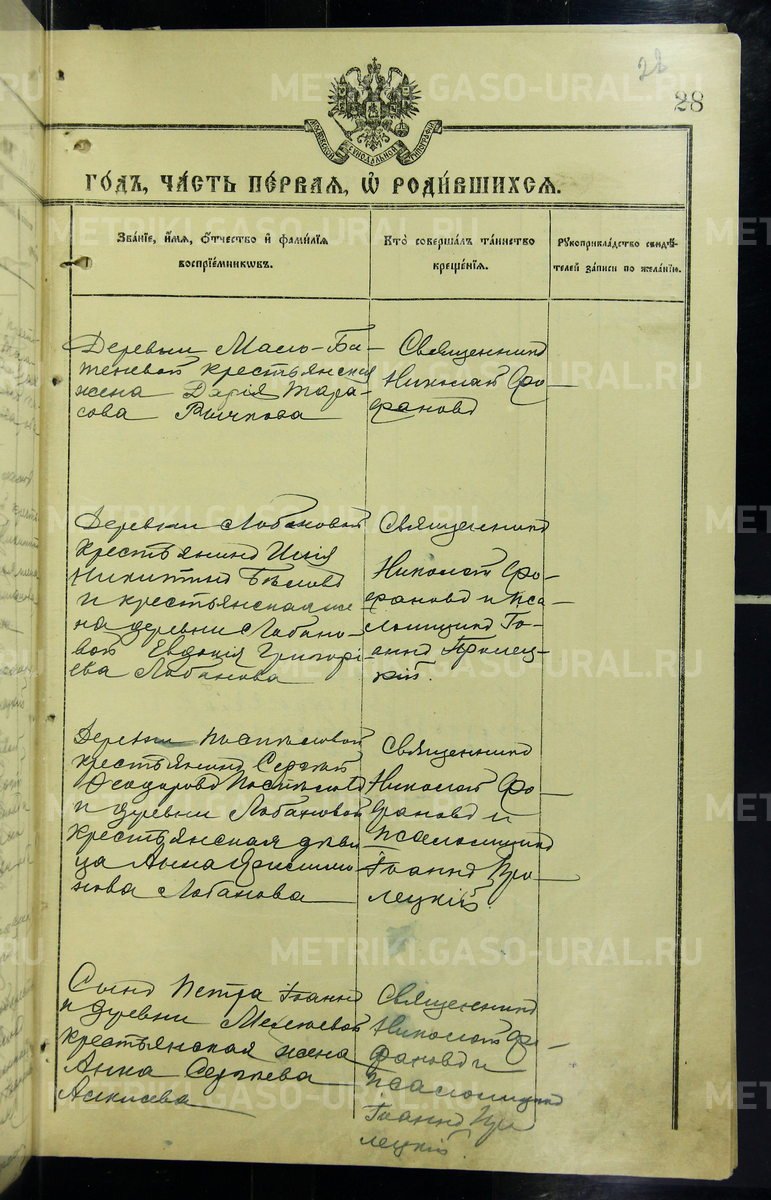 28
28
МОСКОВСКОЙ СѴНОДАЛЬНОЙ ТИПОГРАФІИ
ГО́ДЪ, ЧА́СТЬ ПЕ́РВАЯ, Ѡ҆ РОДИ́ВШИХСЯ.
Зва́нїе, и҆́мя, ѻ҆́тчество и҆ фами́лїя
воспрїе́мниковъ.
Кто̀ соверша́лъ та́инство
креще́нїя.
Рꙋкоприкла́дство свидѣ́-
телей за́писи по жела́нїю.
Деревни Мало-Ба-
женевой крестьянская
жена Дарія Тара-
сова
Священникъ
Николай Фо-
фановъ
Деревни Лобановой
крестьянинъ Илія
Никитинъ Бѣловъ
и крестьянская же-
на деревни Лобано-
вой Евдокія Григорі-
ева Лобанова
Священникъ
Николай Фо-
фановъ и пса-
ломщикъ Іо-
аннъ
Деревни
крестьянинъ Сергій
Ѳеодоровъ
и деревни Лобановой
крестьянская дѣви
ца Анна
нова Лобанова
Священникъ
Николай Фо-
фановъ и
псаломщикъ
Іоаннъ
лецкій.
Сынъ Петра Іоанн
и деревни
крестьянская жена
Анна Сергѣева
Священникъ
Николай Фо-
фановъ и
псаломщикъ
Іоаннъ
лецкій.
METRIKI.GASO-URAL.RU